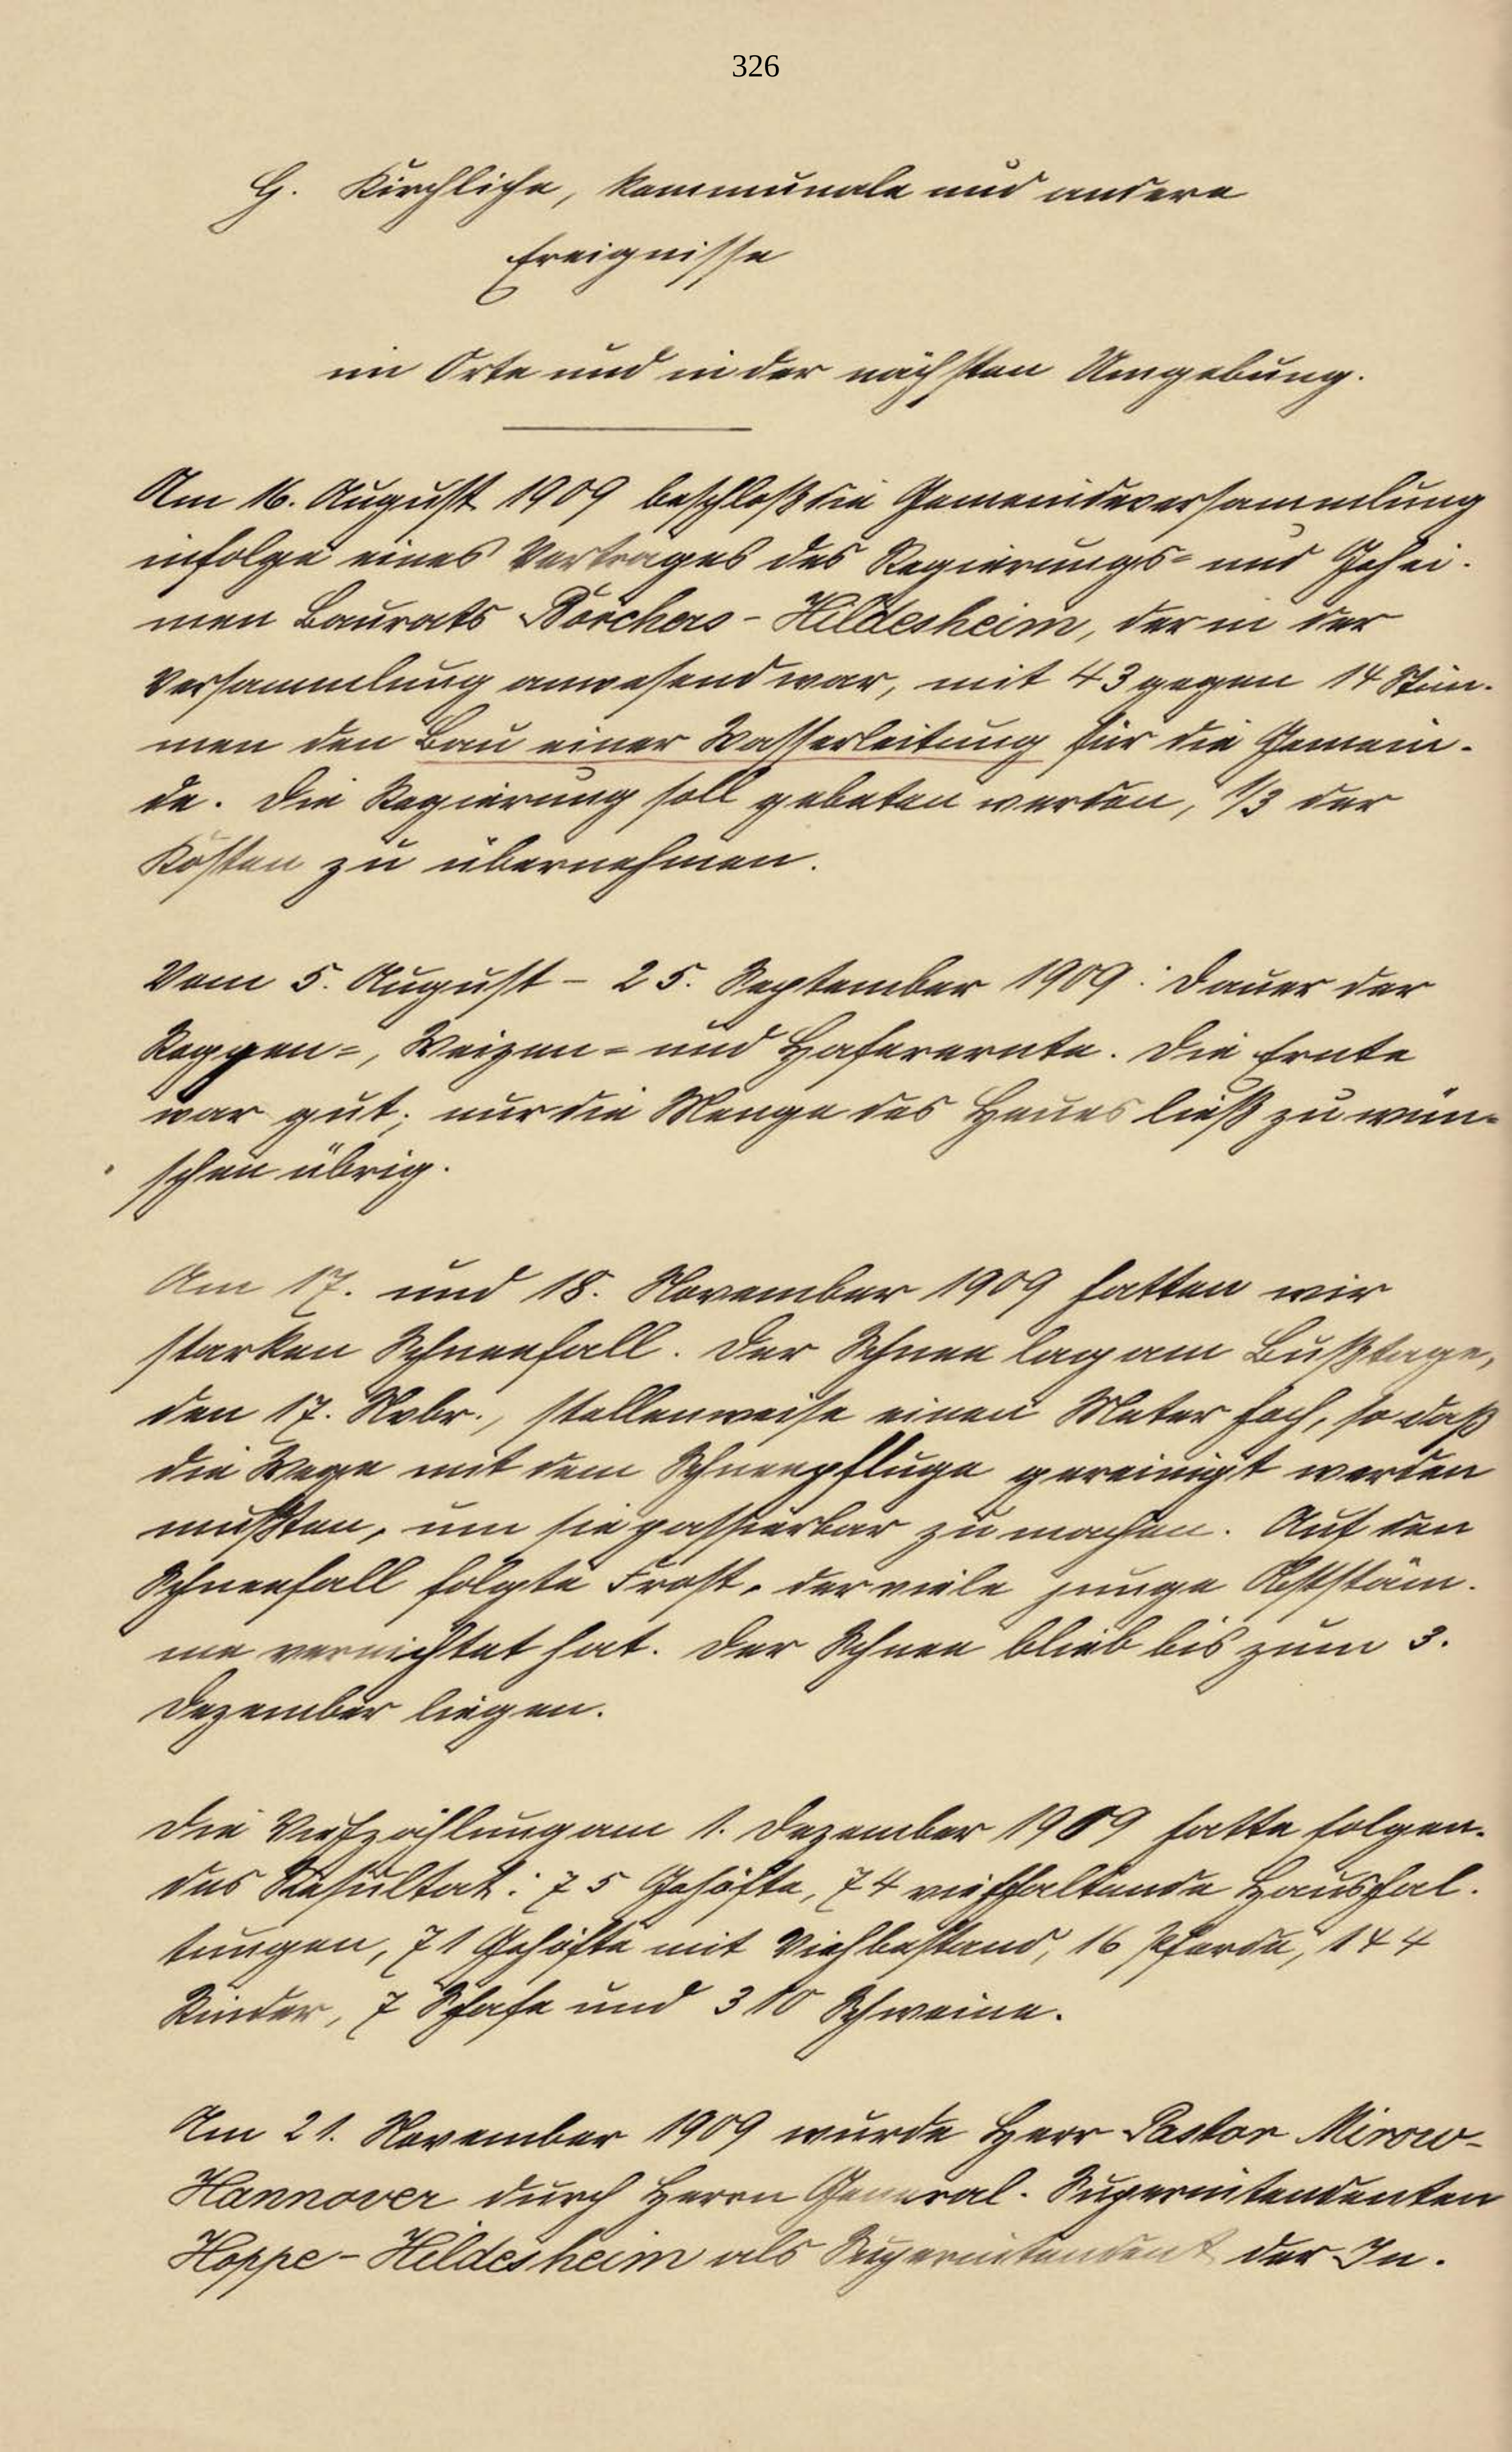 326
G. Kirchliche, kommunale und andere
Ereignisse
im Orte und in der nächsten Umgebung.
Am 16. August 1909 beschloß die Gemeindeversammlung
infolge eines Vertrages des Regierungs= und Gehei-
men Baurats Borchers-Hildesheim, der in der
Versammlung anwesend war, mit 43 gegen 14 Stim-
men den Bau einer Wasserleitung für die Gemein-
de. Die Regierung soll gebeten werden, 1/3 der
Kosten zu übernehmen.
Vom 5. August - 25. September 1909: Dauer der
Roggen=, Weizen= und Haferernte. Die Ernte
war gut; nur die Menge des Heues ließ zu wün=
schen übrig.
Am 17. und 18. November 1909 hatten wir
starken Schneefall. Der Schnee lag am Bußtage,
den 17. Nvbr., stellenweise einen Meter hoch, so daß
die Wege mit dem Schneepfluge gereinigt werden
mußten, um sie passierbar zu machen. Auf den
Schneefall folgte Frost, der viele junge Obststäm-
me vernichtet hat. Der Schnee blieb bis zum 3.
Dezember liegen.
Die Viehzählung am 1. Dezember 1909 hatte folgen-
des Resultat: 75 Gehöfte, 74 viehhaltende Haushal-
tungen, 71 Gehöfte mit Viehbestand, 16 Pferde, 144
Rinder, 7 Schafe und 310 Schweine.
Am 21. November 1909 wurde Herr Pastor Mirow-
Hannover durch Herrn General-Superintendenten
Hoppe-Hildesheim als Superintendent der In-